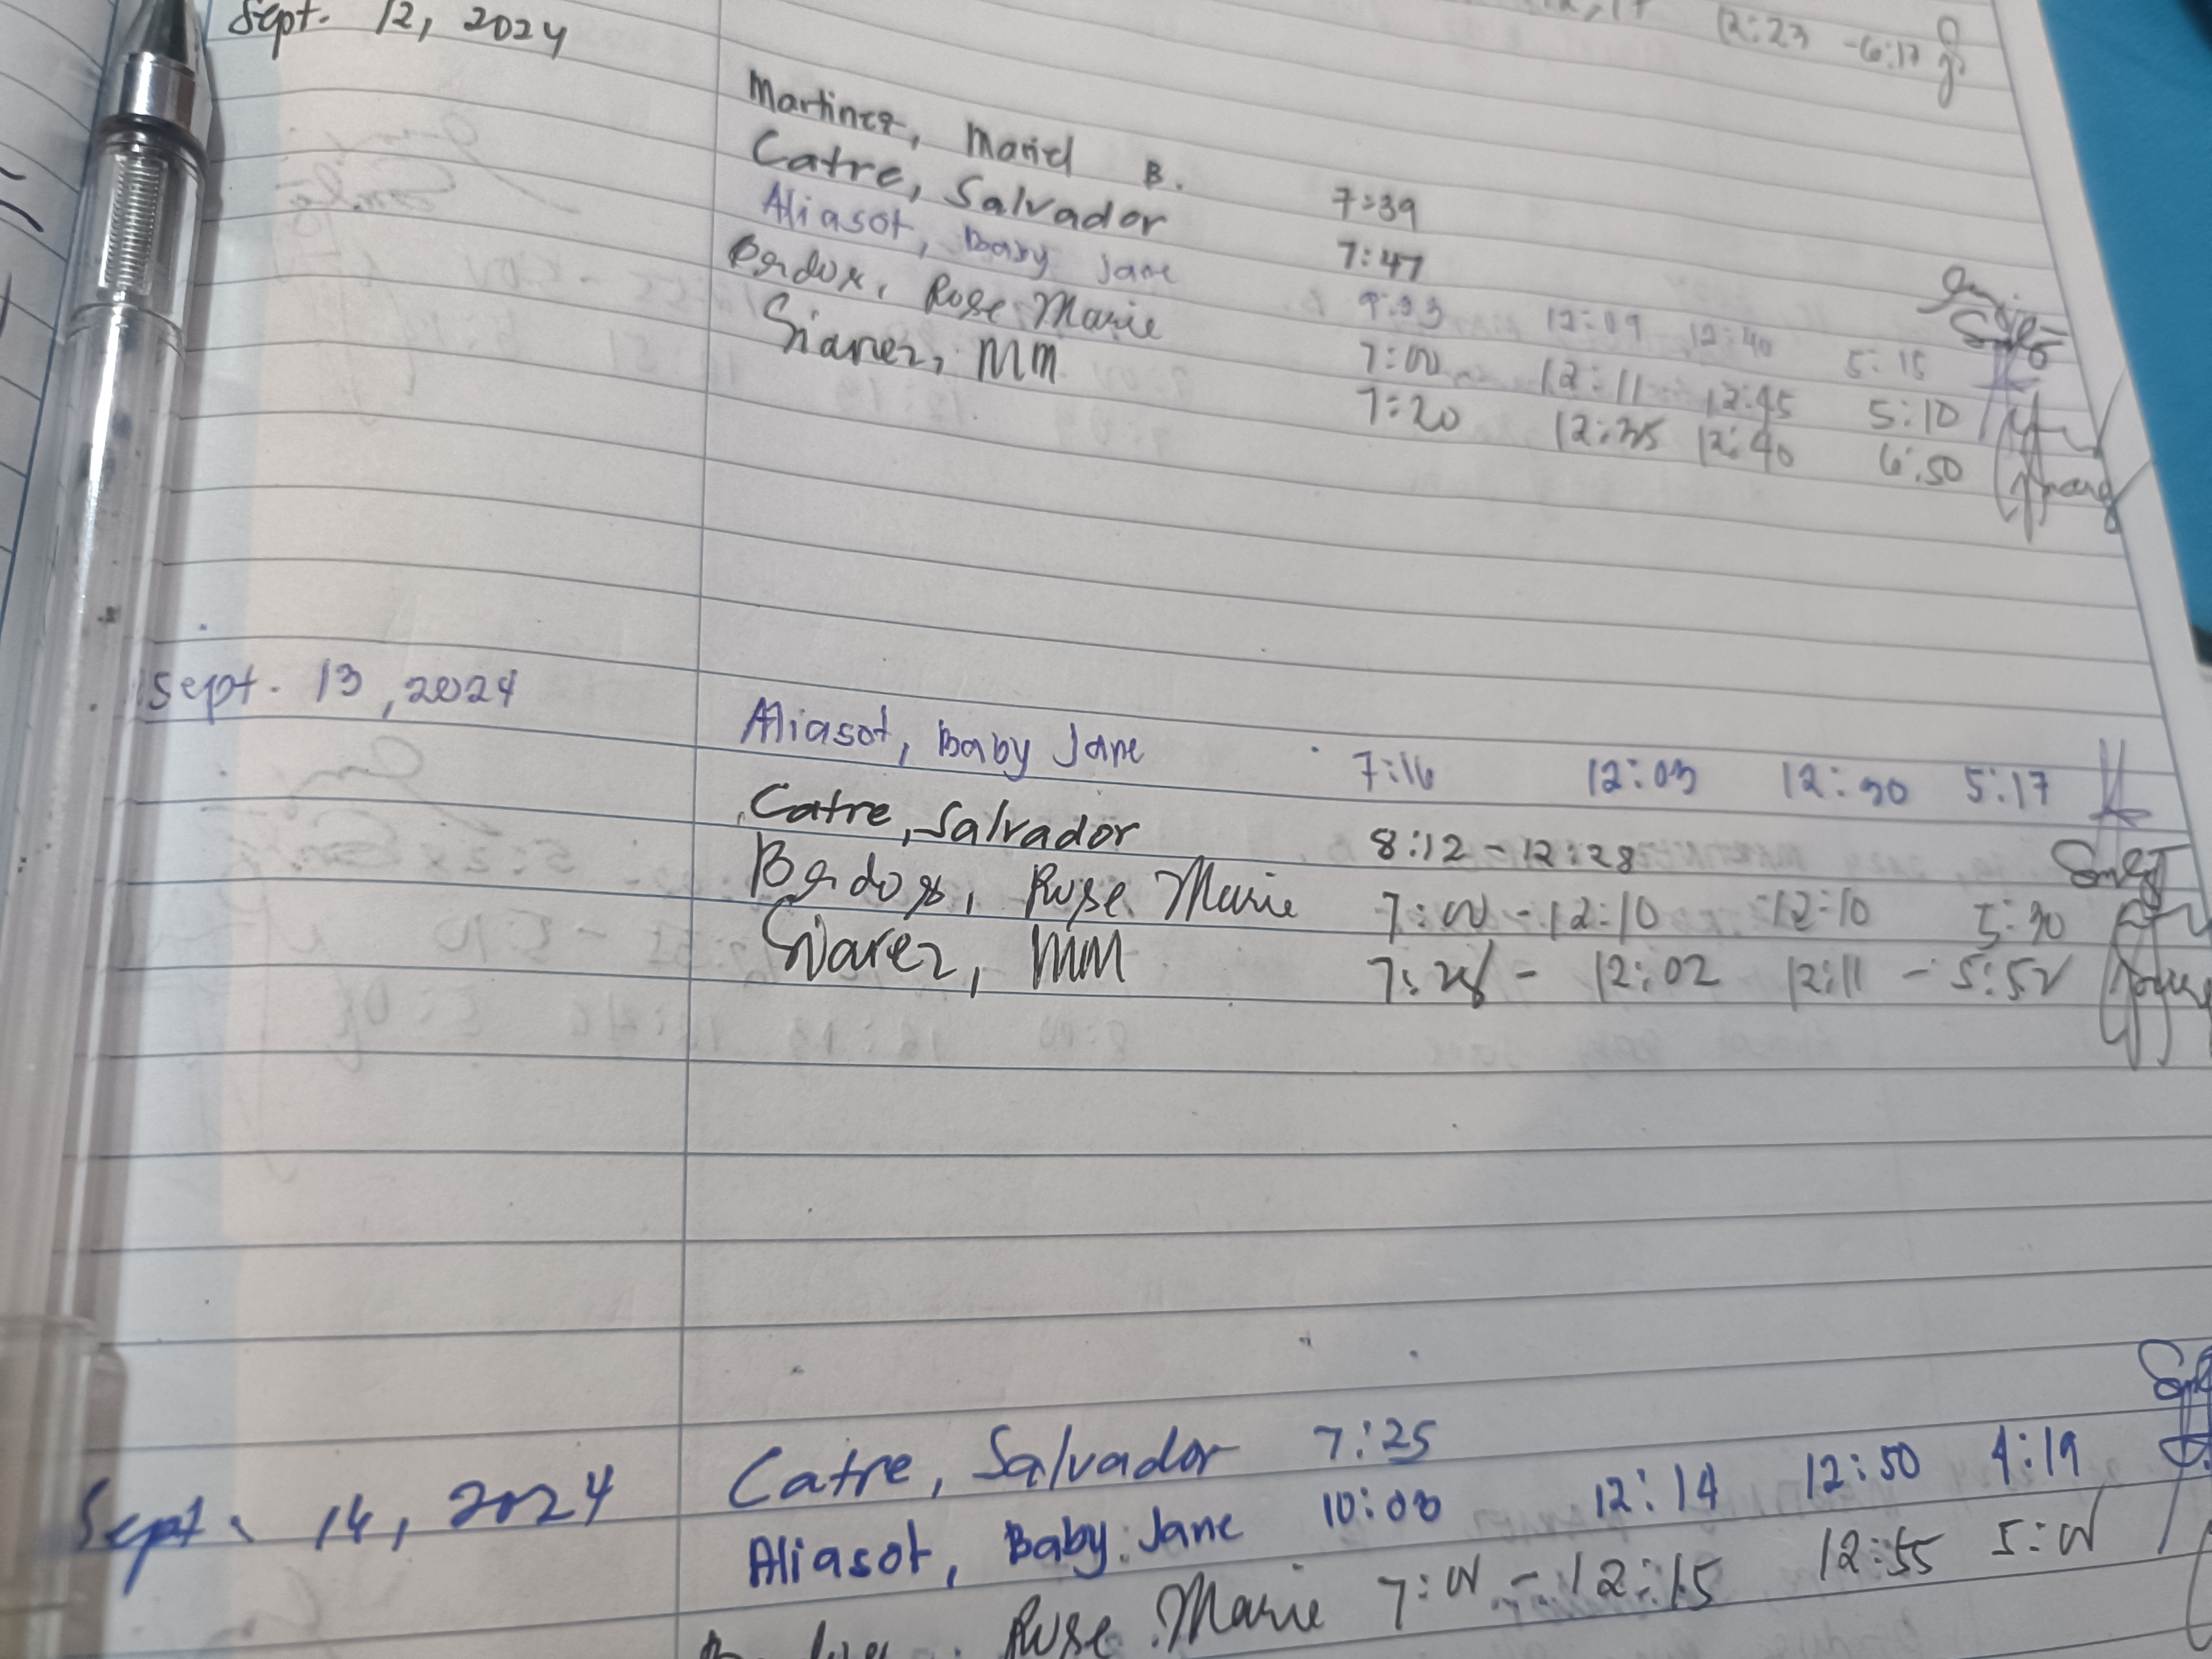 12:23 -6:17
Sept. 12, 2024
Martinez, Mariel B. 7:39
Catre, Salvador 7:47
Aliasot, Baby Jane 9:33 12:09 12:40 5:15
Rose Marie 7:00 12:11 12:45 5:10
Siarez, MM 7:20 12:35 12:40 6:50
Sept. 13, 2024
Aliasot, Baby Jane 7:16 12:03 12:30 5:17
Catre, Salvador 8:12 - 12:28
Rose Marie 7:00 - 12:10 12:10 5:30
Siarez, MM - 12:02 12:11 - 5:52
Sept. 14, 2024
Catre, Salvador 7:25
Aliasot, Baby Jane 10:03 12:14 12:50 4:19
Rose Marie 7:00 - 12:15 12:55 5:00